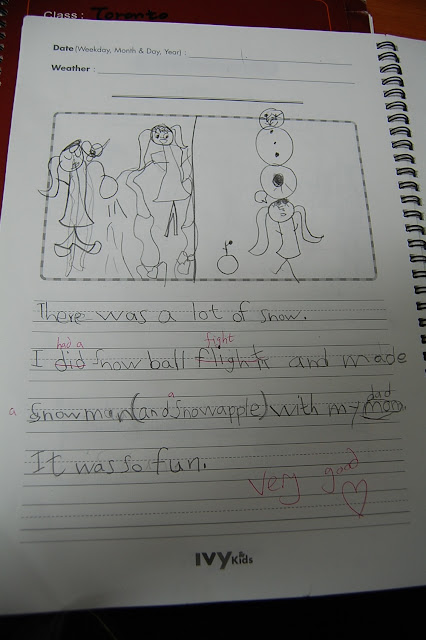 Class : Toronto
Date (Weekday, Month & Day, Year) :
Weather :
There was a lot of snow.
had a fight
I did snow ball flights and made
a dad
a snowman (and snowapple) with my mom.
It was so fun.
very good
IVY Kids